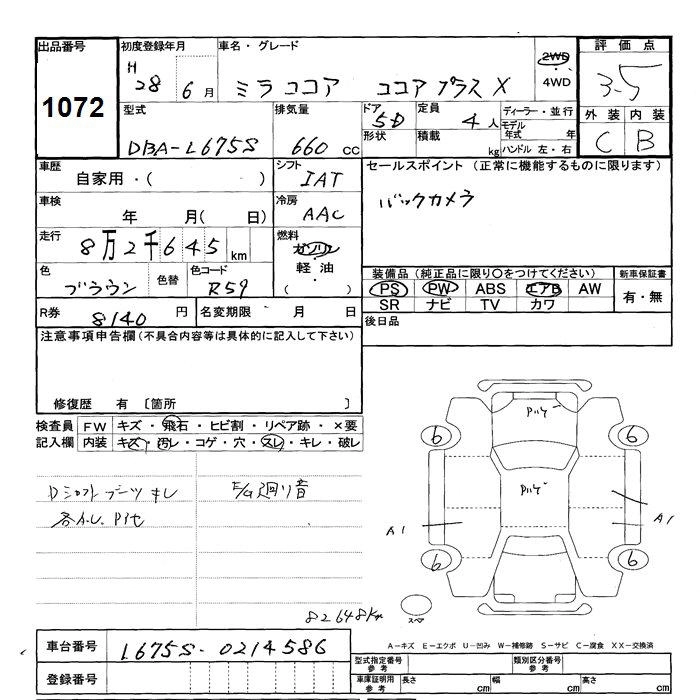 出品番号
1072
初度登録年月
H 28 6月
車名・グレード
ミラココア ココアプラス X
2WD
4WD
評価点
3-5
型式
DBA-L675S
排気量
660 cc
ドア
5D
形状
定員
4人
積載
kg
ディーラー・並行
モデル年式 年
ハンドル 左・右
外装 内装
C B
車歴
自家用・( )
シフト
IAT
セールスポイント (正常に機能するものに限ります)
バックカメラ
車検
年 月( 日)
冷房
AAC
走行
8万2千645km
燃料
ガソリン
軽油
( ・ )
色
ブラウン
色替
色コード
R59
装備品 (純正品に限り○をつけてください)
PS PW ABS エアB AW
SR ナビ TV カワ
新車保証書
有・無
R券
8140円
名変期限 月 日
後日品
注意事項申告欄 (不具合内容等は具体的に記入して下さい)
修復歴 有 〔箇所 〕
検査員記入欄
FW キズ・飛石・ヒビ割・リペア跡・×要
内装 キズ・汚レ・コゲ・穴・スレ・キレ・破レ
Dシフトブーツキレ
E/G廻り音
各A.U. P他
82648Km
P
P
6 6
A1 A1
6 6
スペア
車台番号
L675S-0214586
登録番号
A－キズ E－エクボ U－凹み W－補修跡 S－サビ C－腐食 XX－交換済
型式指定番号 参考
類別区分番号 参考
車庫証明用 参考
長さ cm 幅 cm 高さ cm